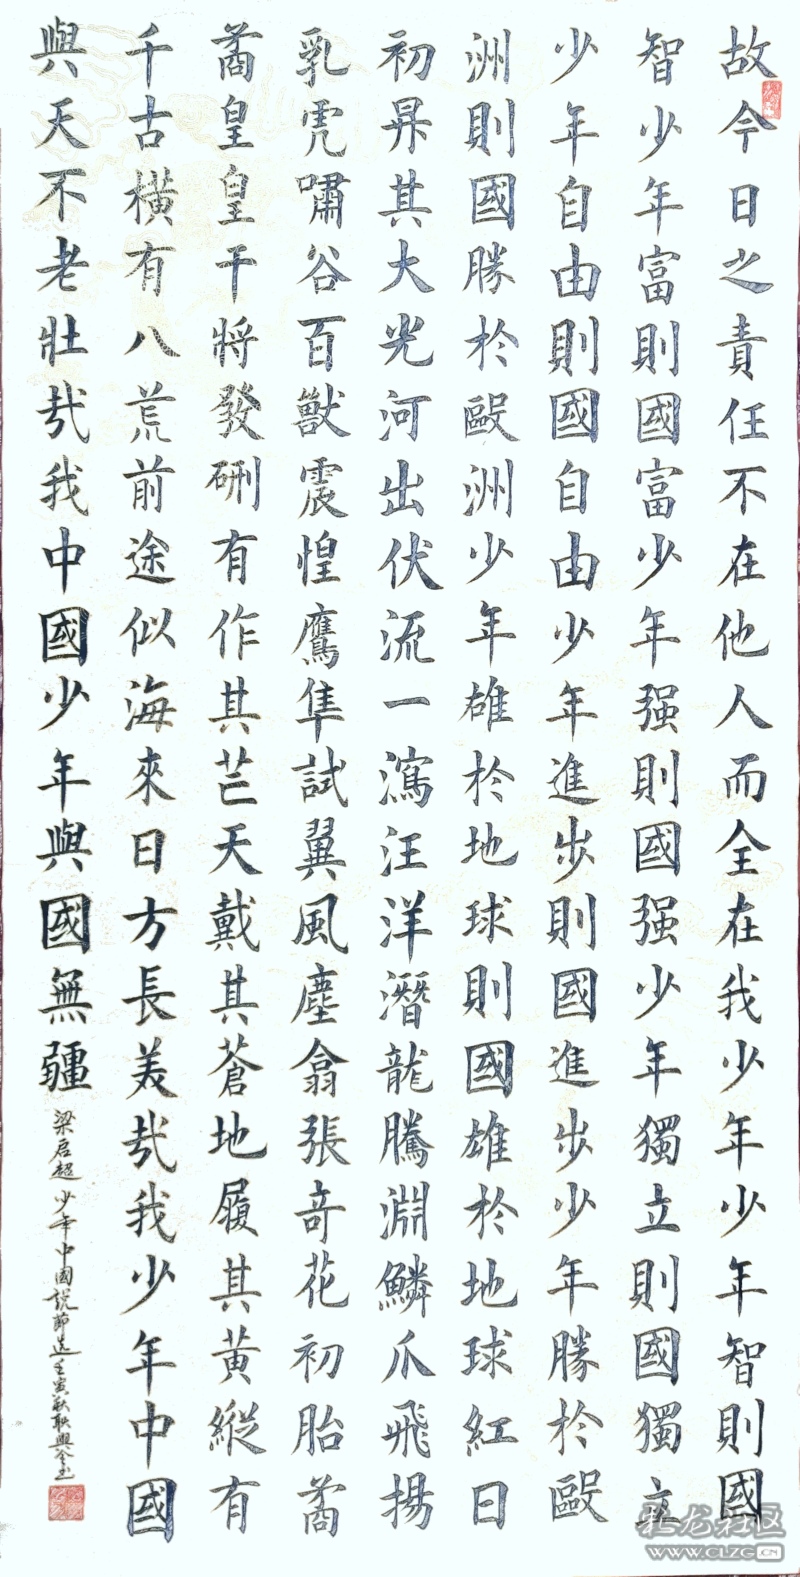 故今日之責任不在他人而全在我少年少年智則國
智少年富則國富少年强則國强少年獨立則國獨立
少年自由則國自由少年進步則國進步少年勝於毆
洲則國勝於毆洲少年雄於地球則國雄於地球紅日
初昇其大光河出伏流一瀉汪洋潛龍騰淵鱗爪飛揚
乳虎嘯谷百獸震惶鷹隼試翼風塵翕張奇花初胎矞
矞皇皇干將發硎有作其芒天戴其蒼地履其黃縱有
千古橫有八荒前途似海來日方長美哉我少年中國
與天不老壯哉我中國少年與國無疆
梁启超少年中國説節选壬寅秋
彩龙社区
WWW.CLZG.CN